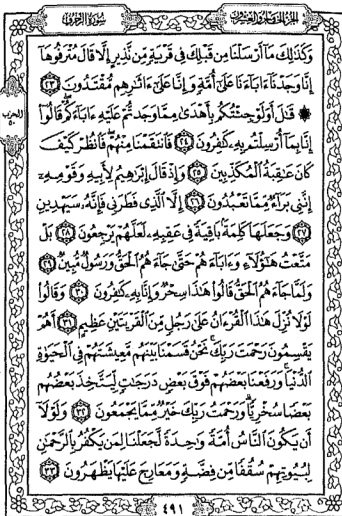 الجزء الخامس والعشرون
سورة الزخرف
وَكَذَٰلِكَ مَآ أَرْسَلْنَا مِن قَبْلِكَ فِى قَرْيَةٍ مِّن نَّذِيرٍ إِلَّا قَالَ مُتْرَفُوهَآ
إِنَّا وَجَدْنَآ ءَابَآءَنَا عَلَىٰٓ أُمَّةٍ وَإِنَّا عَلَىٰٓ ءَاثَٰرِهِم مُّقْتَدُونَ ٢٣
۞ قَٰلَ أَوَلَوْ جِئْتُكُم بِأَهْدَىٰ مِمَّا وَجَدتُّمْ عَلَيْهِ ءَابَآءَكُمْ قَالُوٓا۟
إِنَّا بِمَآ أُرْسِلْتُم بِهِۦ كَٰفِرُونَ ٢٤ فَٱنتَقَمْنَا مِنْهُمْ فَٱنظُرْ كَيْفَ
كَانَ عَٰقِبَةُ ٱلْمُكَذِّبِينَ ٢٥ وَإِذْ قَالَ إِبْرَٰهِيمُ لِأَبِيهِ وَقَوْمِهِۦٓ
إِنَّنِى بَرَآءٌ مِّمَّا تَعْبُدُونَ ٢٦ إِلَّا ٱلَّذِى فَطَرَنِى فَإِنَّهُۥ سَيَهْدِينِ
٢٧ وَجَعَلَهَا كَلِمَةًۢ بَاقِيَةً فِى عَقِبِهِۦ لَعَلَّهُمْ يَرْجِعُونَ ٢٨ بَلْ
مَتَّعْتُ هَٰٓؤُلَآءِ وَءَابَآءَهُمْ حَتَّىٰ جَآءَهُمُ ٱلْحَقُّ وَرَسُولٌ مُّبِينٌ ٢٩
وَلَمَّا جَآءَهُمُ ٱلْحَقُّ قَالُوا۟ هَٰذَا سِحْرٌ وَإِنَّا بِهِۦ كَٰفِرُونَ ٣٠ وَقَالُوا۟
لَوْلَا نُزِّلَ هَٰذَا ٱلْقُرْءَانُ عَلَىٰ رَجُلٍ مِّنَ ٱلْقَرْيَتَيْنِ عَظِيمٍ ٣١ أَهُمْ
يَقْسِمُونَ رَحْمَتَ رَبِّكَ نَحْنُ قَسَمْنَا بَيْنَهُم مَّعِيشَتَهُمْ فِى ٱلْحَيَوٰةِ
ٱلدُّنْيَا وَرَفَعْنَا بَعْضَهُمْ فَوْقَ بَعْضٍ دَرَجَٰتٍ لِّيَتَّخِذَ بَعْضُهُم
بَعْضًا سُخْرِيًّا وَرَحْمَتُ رَبِّكَ خَيْرٌ مِّمَّا يَجْمَعُونَ ٣٢ وَلَوْلَآ
أَن يَكُونَ ٱلنَّاسُ أُمَّةً وَٰحِدَةً لَّجَعَلْنَا لِمَن يَكْفُرُ بِٱلرَّحْمَٰنِ
لِبُيُوتِهِمْ سُقُفًا مِّن فِضَّةٍ وَمَعَارِجَ عَلَيْهَا يَظْهَرُونَ ٣٣
الحزب
٥٠
٤٩١